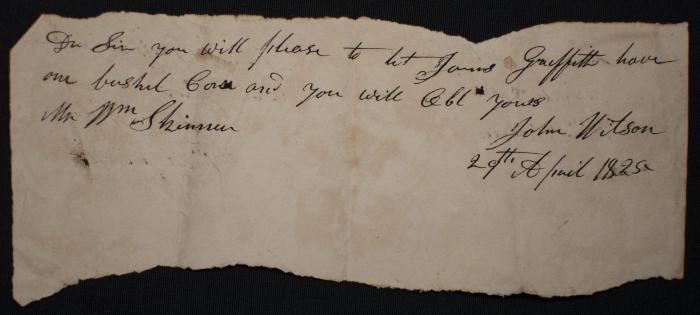 Dr Sir you will please to let James Greffith have
one bushel Corn and you will Obl yours
Mr Wm Skinner
John Wilson
29th April 1825